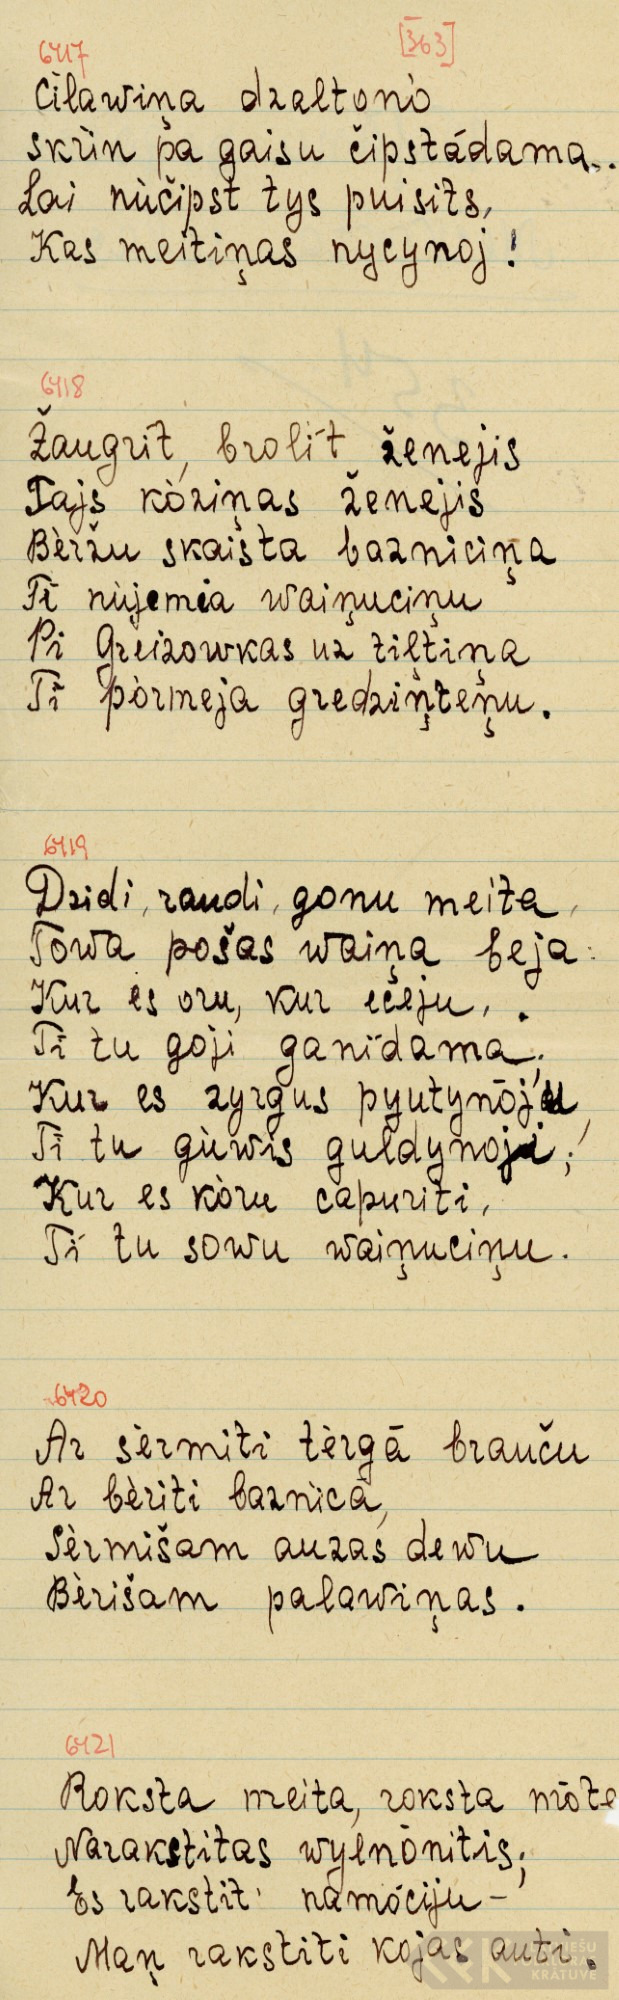 6417 [363]
Cīlawiņa dzaltonò
skrìn pa gaisu čipstádama...
Lai nùčipst tys puisits,
Kas meitiņas nycynoj!
6418
Žaugrit, brolít ženejis
Tajs kòziņas ženejis
Bèržu skaista bazniciņa
Tī nùjemėa waiņuciņu
Pi Greizowkas uz tiļtiņa
Tī pòrmeja gredziņteņu.
6419
Dzidi, raudi, gonu meita,
Towa pošas waiņa beja:
Kur es oru, kur ečeju,
Tī tu goji ganídama,
Kur es zyrgus pyutynōju,
Tī tu gùwis guldynoji;
Kur es kòru capuriti,
Tí tu sowu waiņuciņu.
6420
Ar sèrmiti tèrgā braučù
Ar bèriti baznìcā,
Sèrmišam auzas dewu
Bèrišam palawiņas.
6421
Roksta meita, roksta mōte
Narakstitas wylnònitis;
Es rakstit' namóciju-
Maņ rakstiti kojas auti.
KRĀTUVE